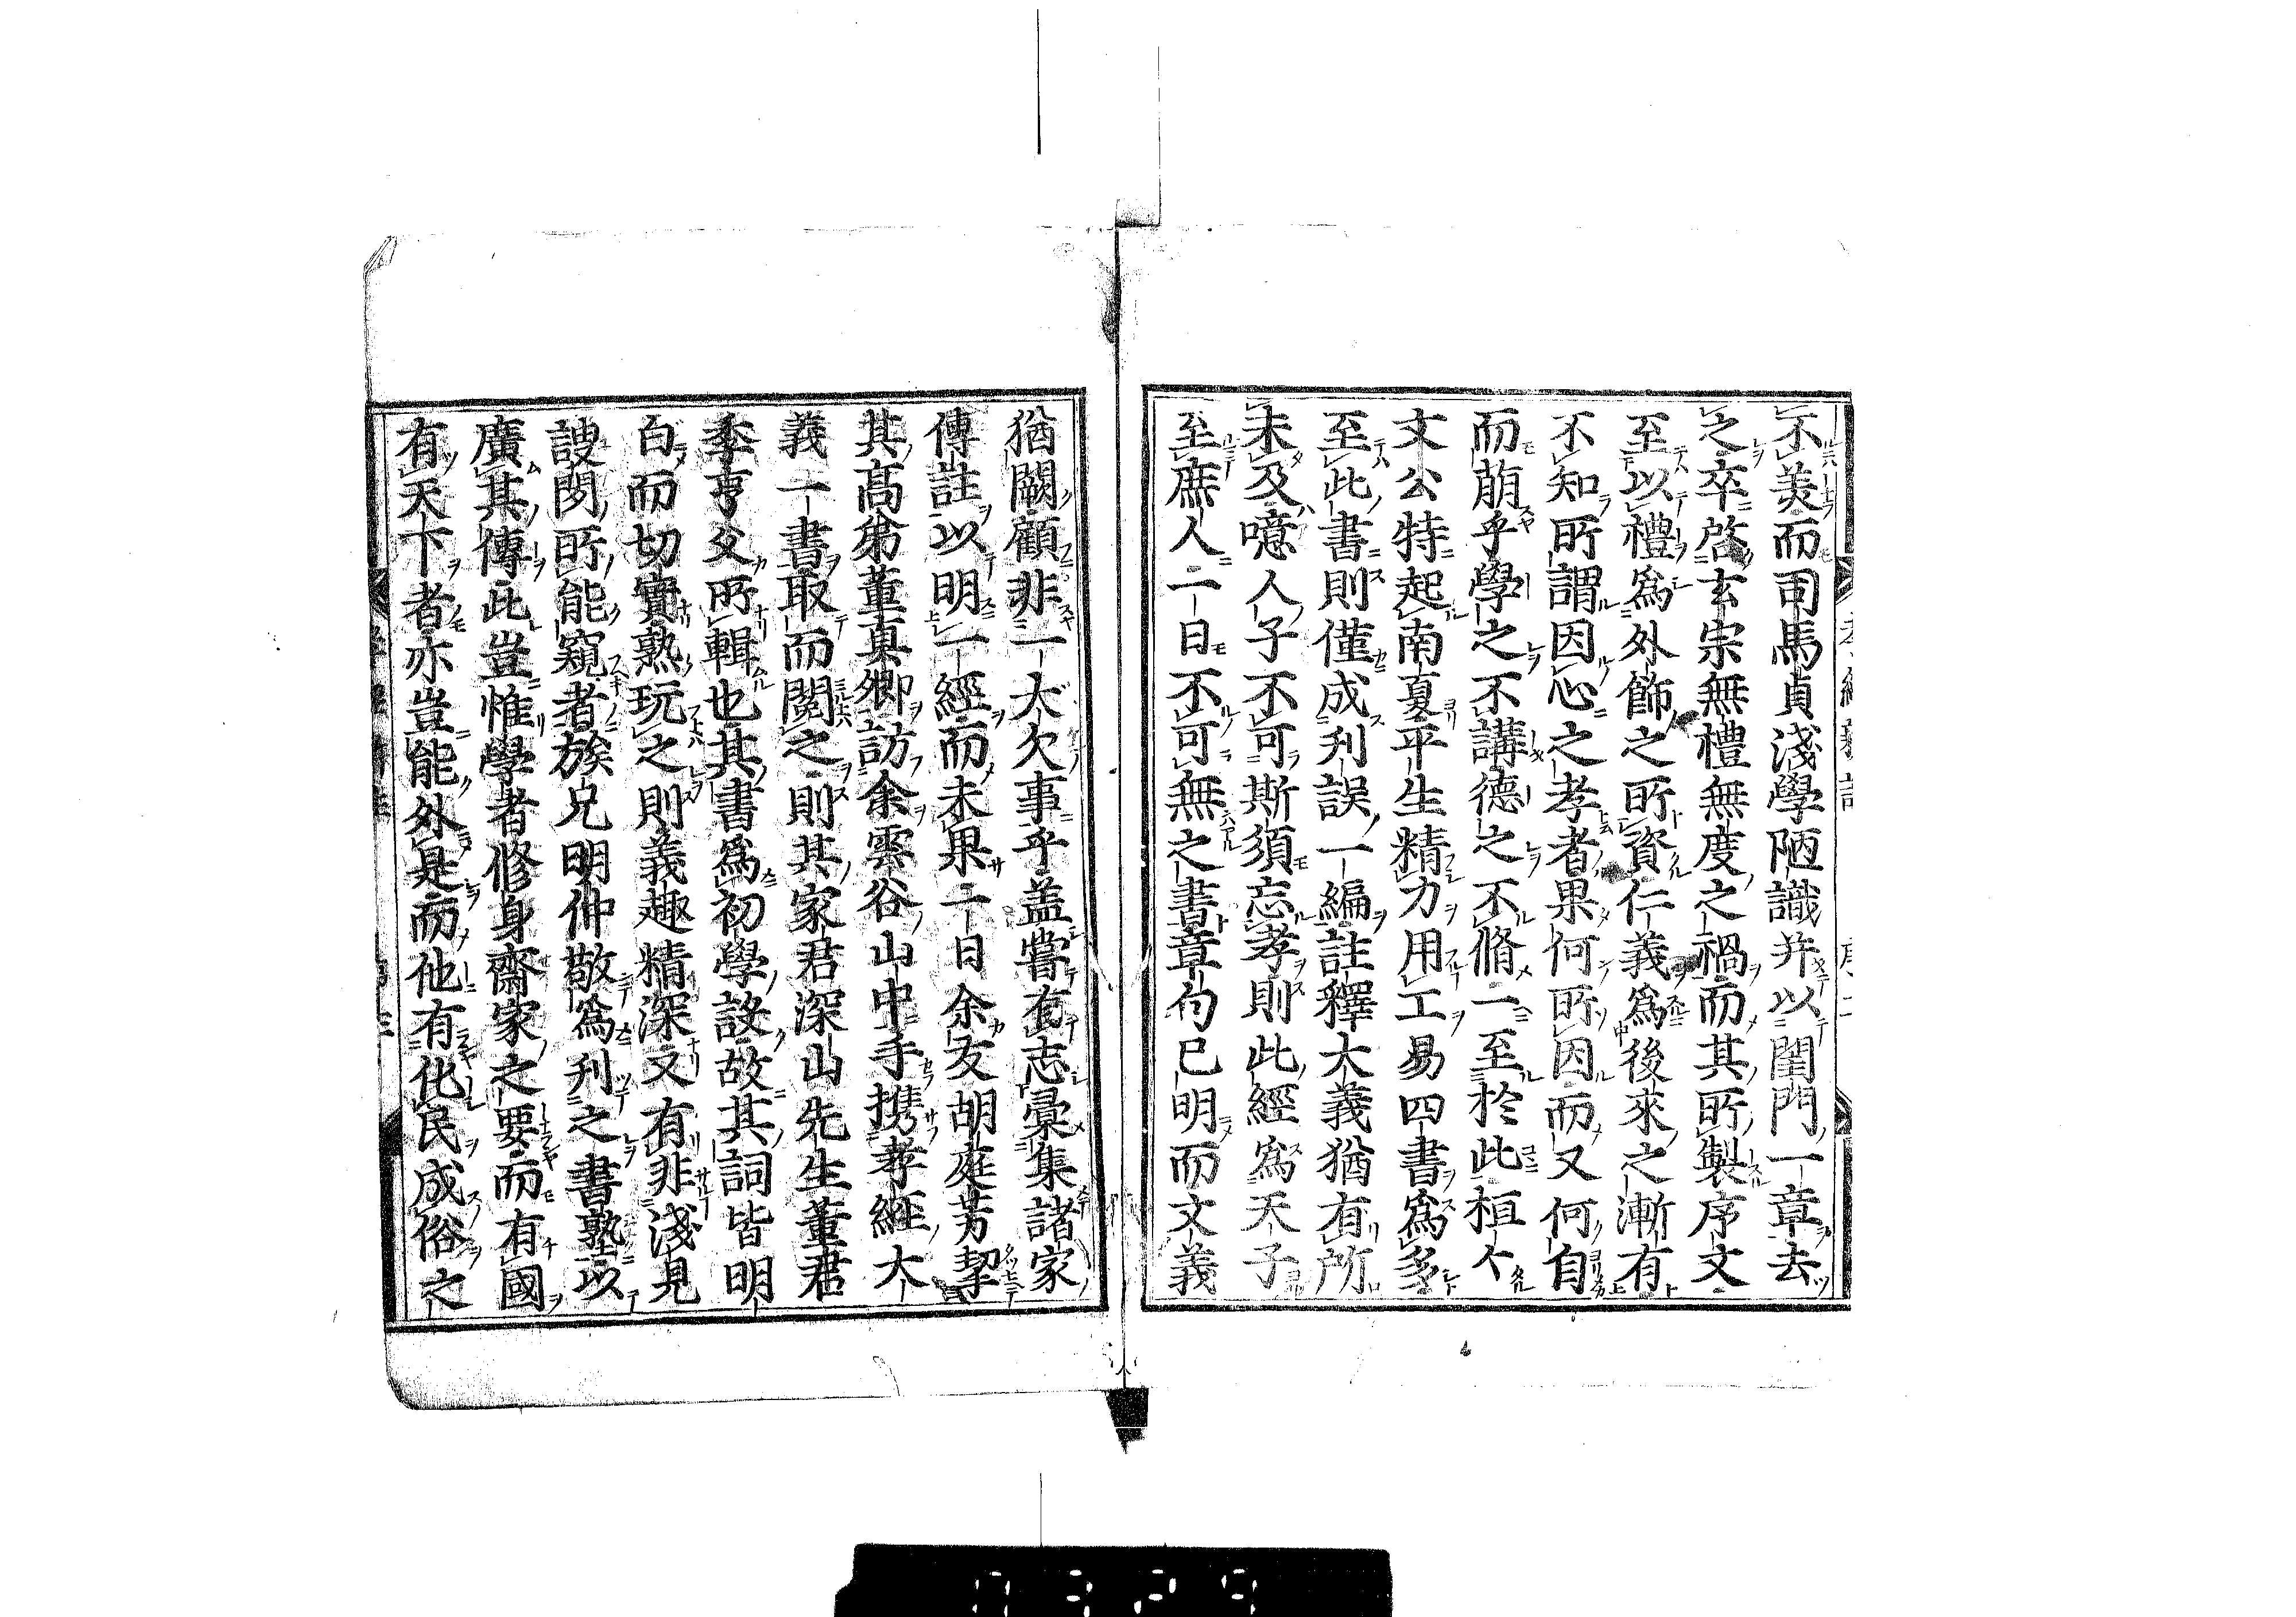 不羙而司馬貞淺學陋識并以閨門一章去
之卒啓玄宗無禮無度之禍而其所製序文
至以禮爲外飾之所資仁義爲後來之漸有
不知所謂因心之孝者果何所因而又何自
而萠乎學之不講德之不脩一至於此桓
文公特起南夏平生精力用工易四書爲多
至此書則僅成刋誤一編註釋大義猶有所
未及噫人子不可斯須忘孝則此經爲天子
至庶人一日不可無之書章句已明而文義
猶闕顧非一大欠事乎盖嘗有志彙集諸家
傳註以明一經而未果一日余友胡庭芳挈
其高弟董真卿訪余雲谷山中手携孝經大
義一書取而閱之則其家君深山先生董君
季亨父所輯也其書爲初學設故其詞皆明
白而切實熟玩之則義趣精深又有非淺見
謏聞所能窺者族兄明仲敬爲刋之書塾以
廣其傳此豈惟學者修身齋家之要而有國
有天下者亦豈能外是而他有化民成俗之